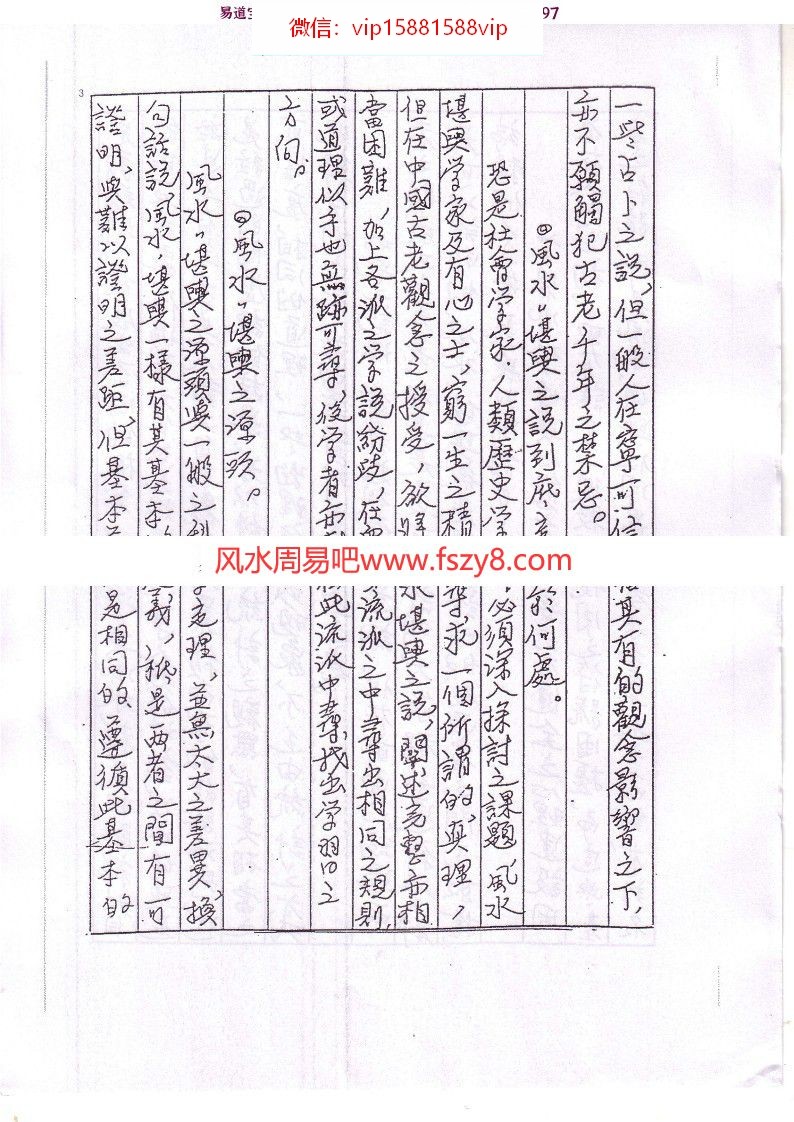 易道
微信：vip15881588vip
97
3
一些占卜之說，但一般人在寧可信其有的觀念影響之下，
亦不願觸犯古老千年之禁忌。
◎風水，堪輿之說到底 於何處。
恐是社會学家，人類歷史学 必須深入探討之課題，風水
堪輿学家及有心之士，窮一生之精 尋求一個所謂的，真理，
但在中國古老觀念之授受，欲將 水堪輿之說，闡述完整亦相
當困難，加上各派之学說紛歧，在 流派之中尋出相同之規則，
或道理似乎也無跡可尋，後学者亦 此流派中尋找出学習之
方向。
◎風水，堪輿之源頭。
風水，堪輿之源頭與一般之 定理，並無太大之差異，換
句話說，風水，堪輿一樣有其基本 義，就是兩者之間有可
證明，與難以證明之差距，但基本 是相同的，遵循此基本的
风水周易吧www.fszy8.com